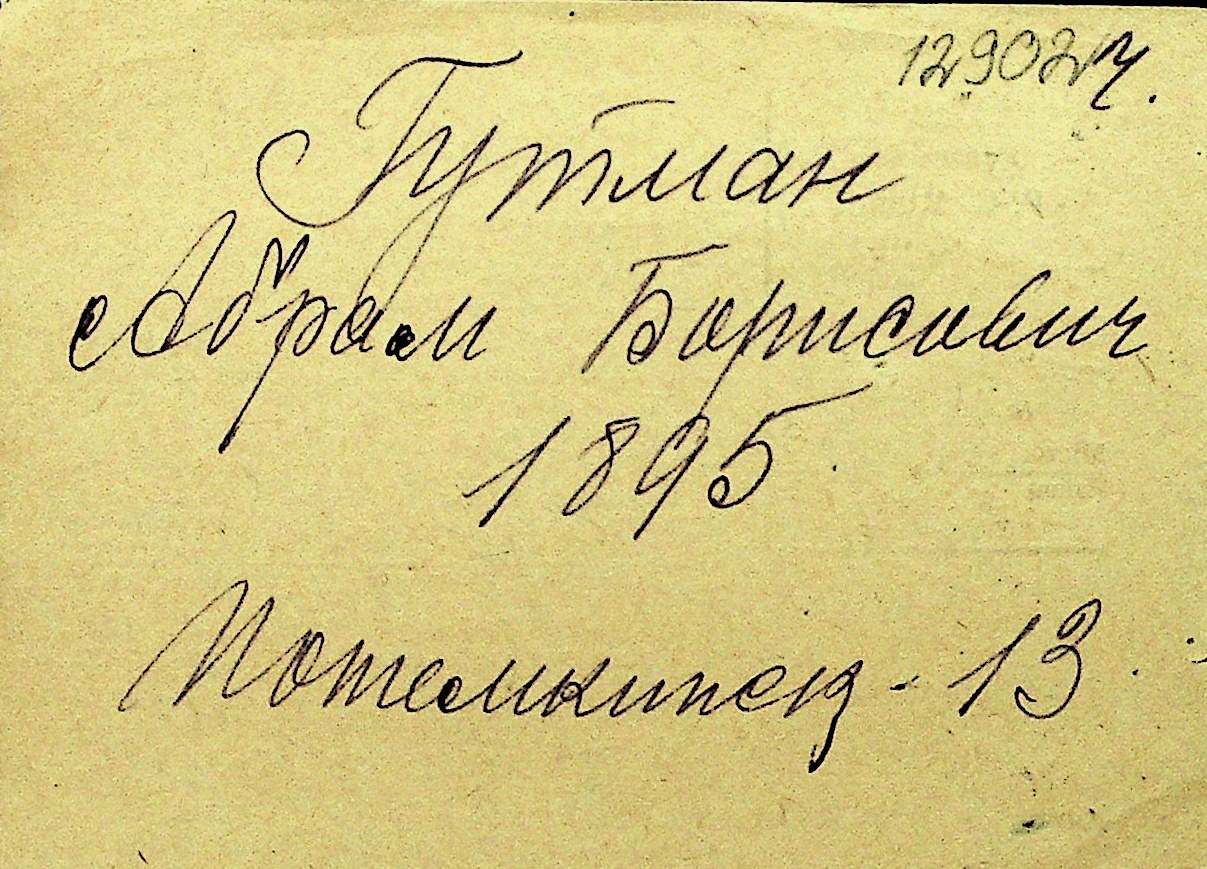 12902ч.
Гутман
Абрам Борисович
1895
Потемкинск - 13